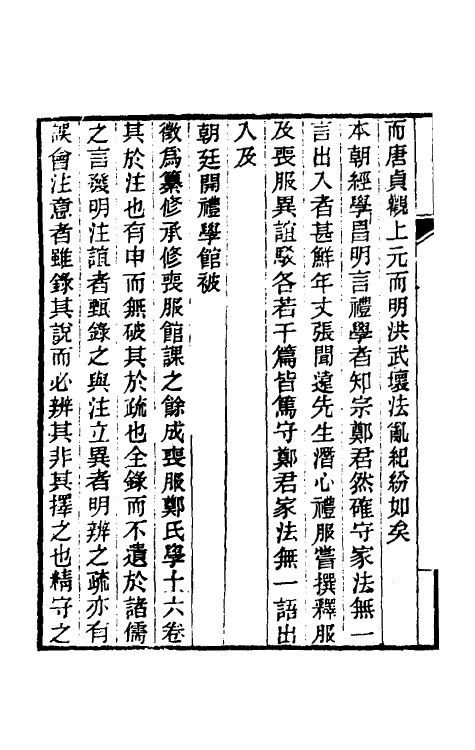 而唐貞觀上元而明洪武壞法亂紀紛如矣
本朝經學昌明言禮學者知宗鄭君然確守家法無一
言出入者甚鮮年丈張聞遠先生潛心禮服嘗撰釋服
及喪服異誼駁各若干篇皆篤守鄭君家法無一語出
入及
朝廷開禮學館被
徵爲纂修承修喪服館課之餘成喪服鄭氏學十六卷
其於注也有申而無破其於疏也全錄而不遺於諸儒
之言發明注誼者甄錄之與注立異者明辨之疏亦有
誤會注意者雖錄其說而必辨其非其擇之也精守之